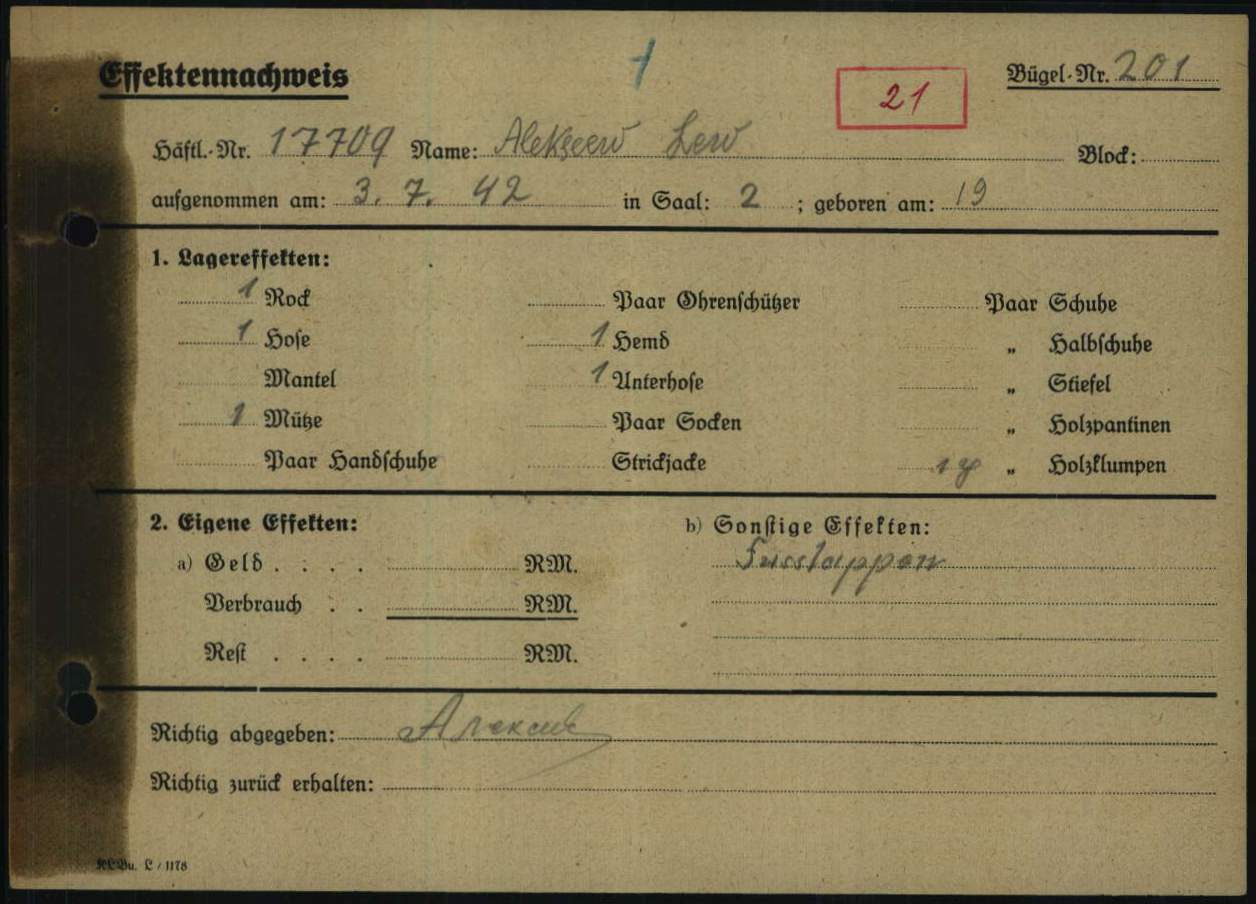 Effektennachweis
Bügel-Nr. 201
21
Häftl.-Nr. 17709 Name: Alekseew Lew Block:
aufgenommen am: 3. 7. 42 in Saal: 2 ; geboren am: 19
1. Lagereffekten:
1 Rock Paar Ohrenschützer Paar Schuhe
1 Hose 1 Hemd „ Halbschuhe
Mantel 1 Unterhose „ Stiefel
1 Mütze Paar Socken „ Holzpantinen
Paar Handschuhe Strickjacke 1 „ Holzklumpen
2. Eigene Effekten: b) Sonstige Effekten:
a) Geld . . . . RM. Fusslappen
Verbrauch . . RM.
Rest . . . . RM.
Richtig abgegeben:
Richtig zurück erhalten:
KLBu. L / 1178